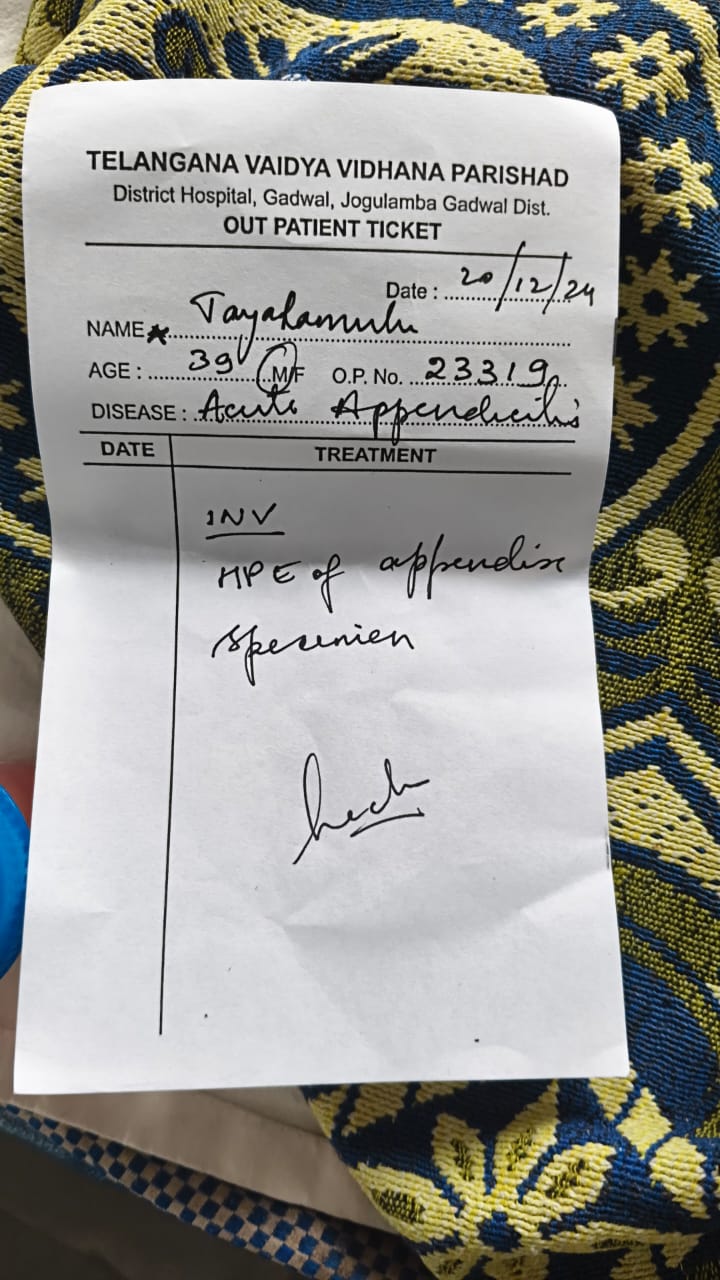 TELANGANA VAIDYA VIDHANA PARISHAD
District Hospital, Gadwal, Jogulamba Gadwal Dist.
OUT PATIENT TICKET
Date : 20/12/24
NAME
AGE : 39 M/F O.P. No. 23319
DISEASE : Acute Appendicitis
DATE TREATMENT
INV
HPE of appendix
specimen